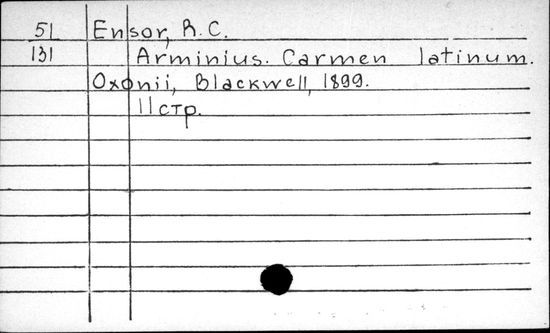 51 Ensor, R. C.
131 Arminius. Carmen latinum.
Oxonii, Blackwell, 1899.
11 стр.